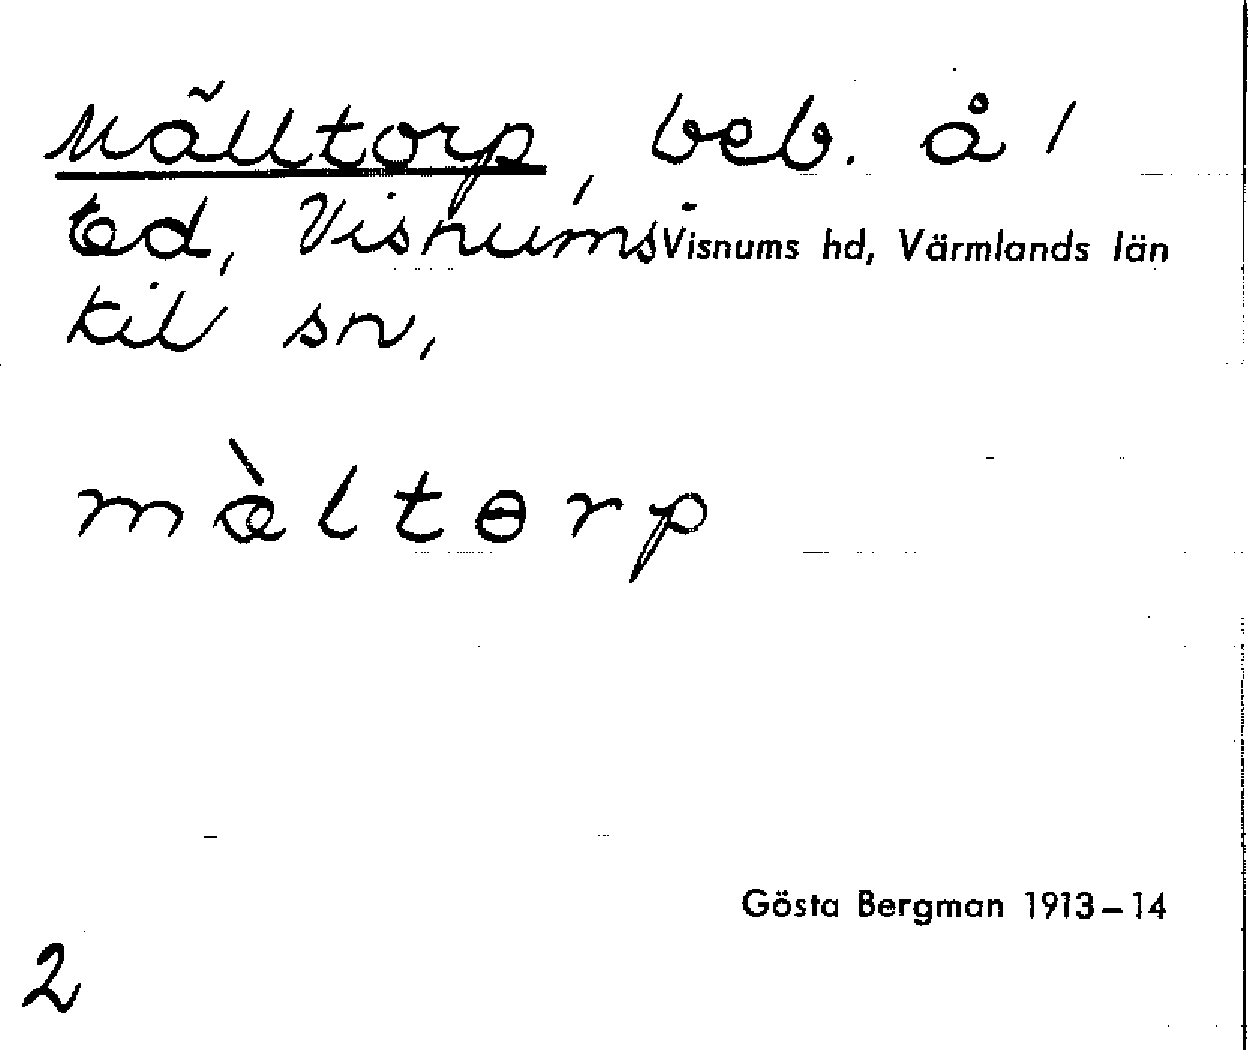 Mälltorp, beb. å 1
Ed, Visnums Visnums hd, Värmlands län
kil sn,
mæ̀ltɵrp
Gösta Bergman 1913–14
2